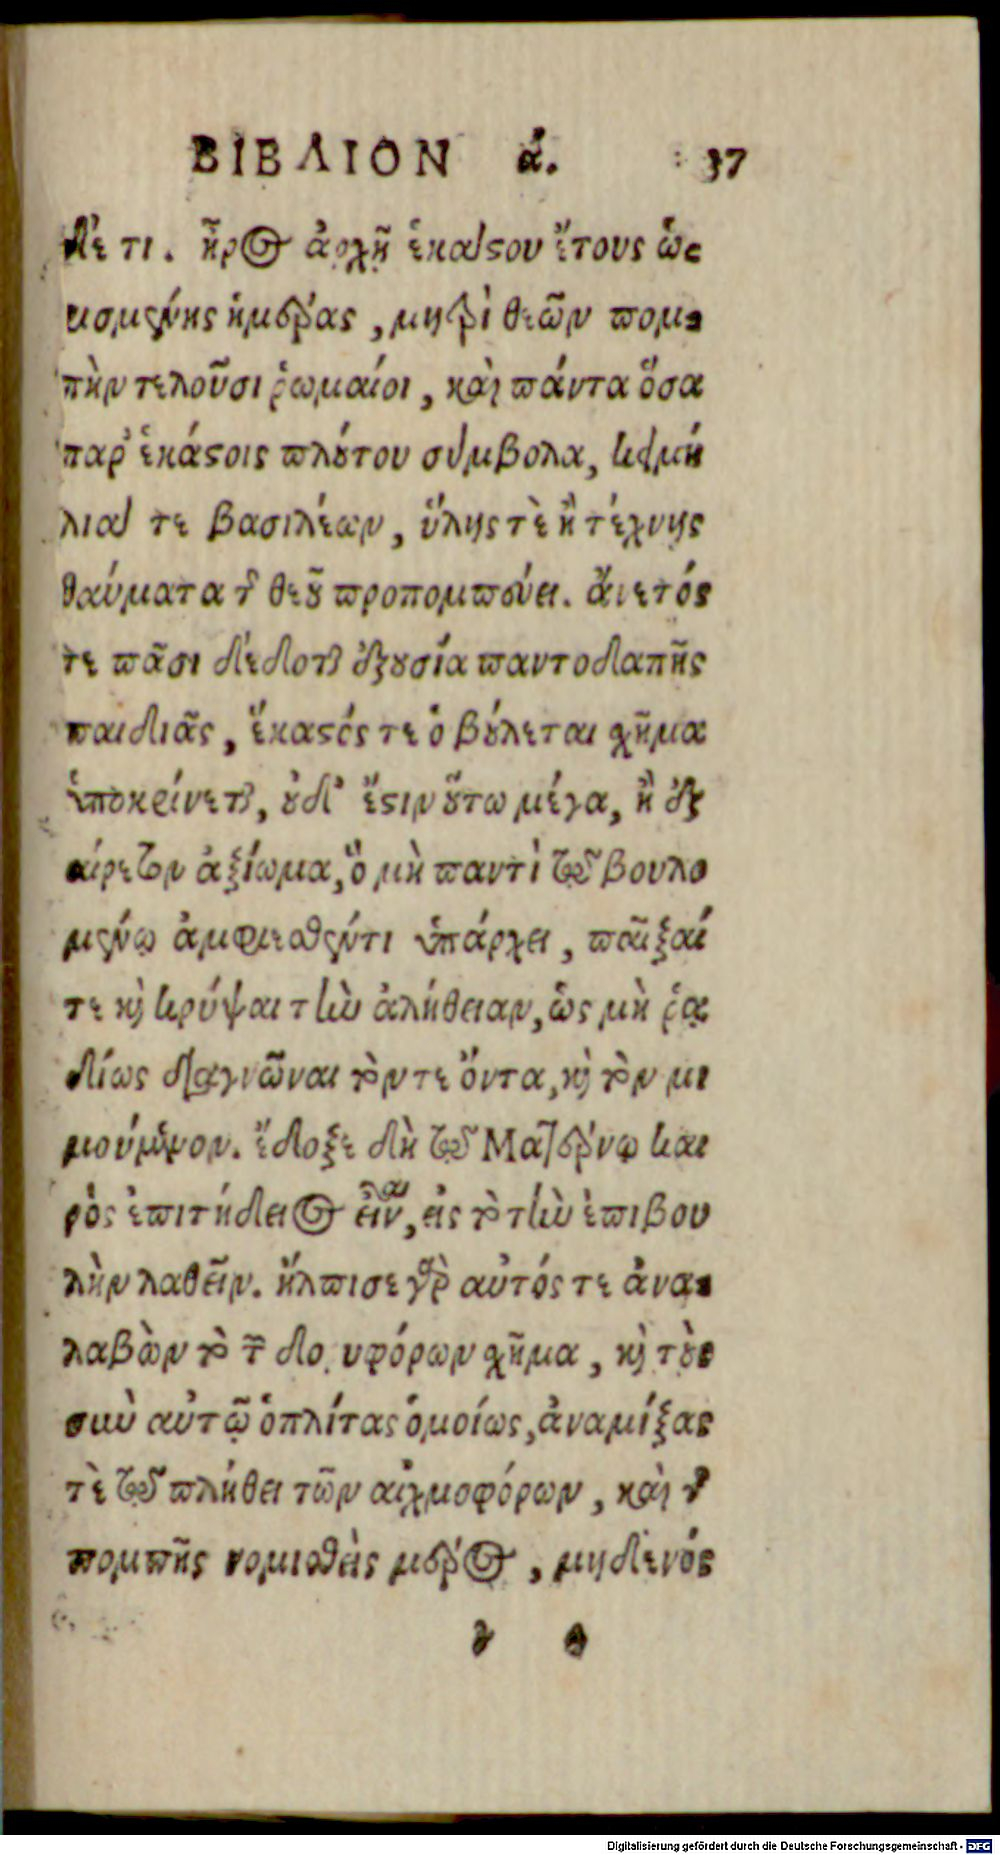 ΒΙΒΛΙΟΝ ά. 37
δέ τι. ἦρος ἀρχῇ ἑκάστου ἔτους ὡς
ισμένης ἡμέρας, μητρὶ θεῶν πομ-
πὴν τελοῦσι ῥωμαίοι, καὶ πάντα ὅσα
παρ' ἑκάστοις πλούτου σύμβολα, κειμή
λιά τε βασιλέων, ὕλης τὲ ἢ τέχνης
θαύματα τῆς θεοῦ προπομπεύει. ἄνετός
τε πᾶσι δέδοται ἐξουσία παντοδαπῆς
παιδιᾶς, ἕκαστός τε ὃ βούλεται σχῆμα
ὑποκρίνεται, οὐδ' ἔστιν οὕτω μέγα, ἢ ἐξ
αίρετον ἀξίωμα, ὃ μὴ παντὶ τῷ βουλο
μένῳ ἀμφιεσθέντι ὑπάρχει, παῖξαί
τε καὶ κρύψαι τὴν ἀλήθειαν, ὡς μὴ ῥᾳ
δίως διαγνῶναι τόν τε ὄντα, καὶ τὸν μι
μούμενον. ἔδοξε δὴ τῷ Ματέρνῳ και
ρὸς ἐπιτήδειος εἶναι, εἰς τὸ τὴν ἐπιβου
λὴν λαθεῖν. ἤλπισε γὰρ αὐτός τε ἀνα-
λαβὼν τὸ τῶν δορυφόρων σχῆμα, καὶ τοὺς
σὺν αὐτῷ ὁπλίτας ὁμοίως, ἀναμίξας
τὲ τῷ πλήθει τῶν αἰχμοφόρων, καὶ τῆς
πομπῆς νομισθεὶς μέρος, μηδενός